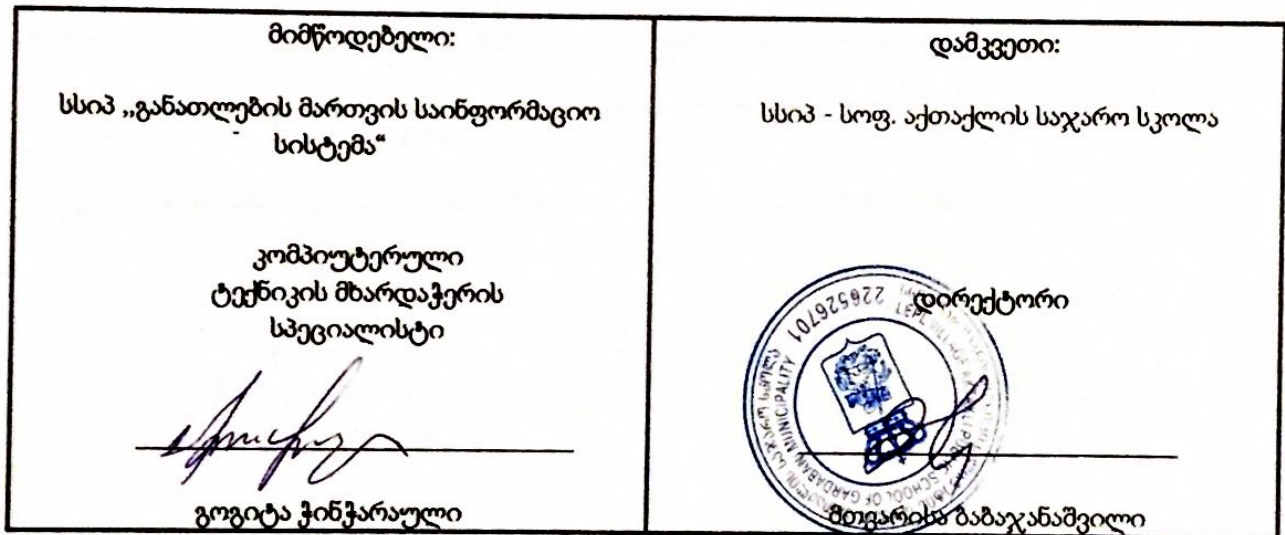 მიმწოდებელი:
სსიპ ,,განათლების მართვის საინფორმაციო
სისტემა“
კომპიუტერული
ტექნიკის მხარდაჭერის
სპეციალისტი
გოგიტა ჭინჭარაული
დამკვეთი:
სსიპ - სოფ. აქთაქლის საჯარო სკოლა
დირექტორი
226526701
SCHOOL OF GARDABANI MUNICIPALITY
მთვარისა ბაბაჯანაშვილი